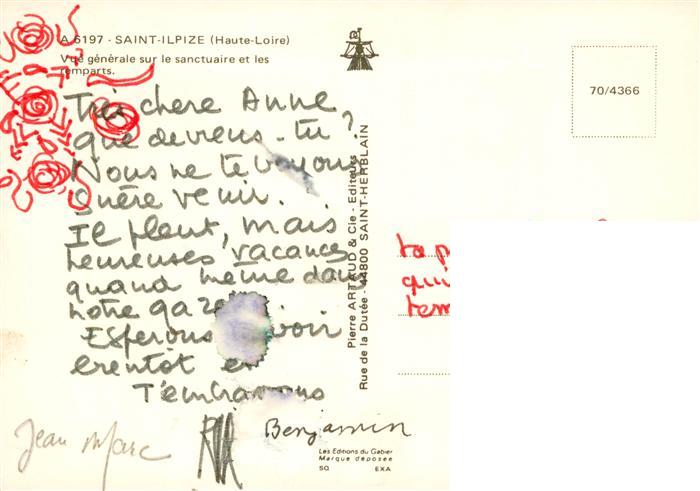 A 6197 - SAINT-ILPIZE (Haute-Loire)
Vue générale sur le sanctuaire et les
remparts.
70/4366
Très chere Anne,
que deviens-tu?
Nous ne te voyons
guère venir.
Il pleut, mais
heureuses vacances
quand même dans
notre
Esperons voir
bientôt et
T'embrassons
Jean Marc
Benjamin
Pierre ARTAUD & Cie - Editeurs
Rue de la Dutée - 44800 SAINT-HERBLAIN
qui
Les Editions du Gabier
Marque déposée
SQ EXA